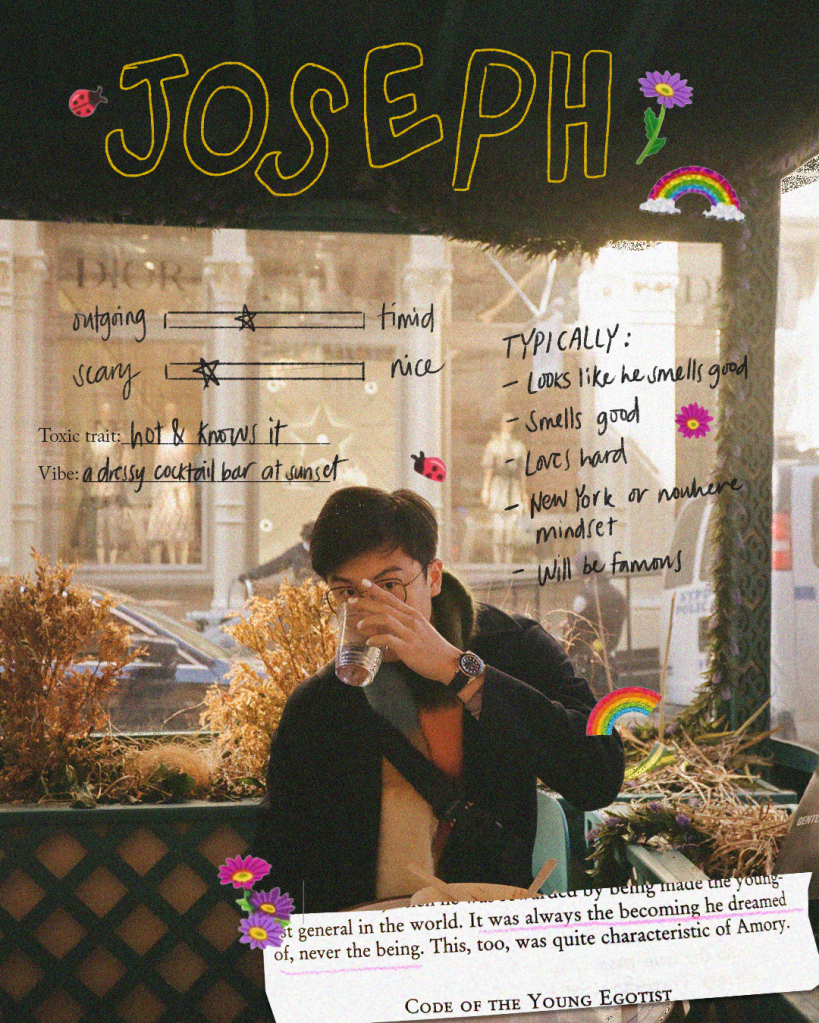 JOSEPH
DIOR
outgoing timid
scary nice
Toxic trait: hot & knows it
Vibe: a dressy cocktail bar at sunset
TYPICALLY:
- Looks like he smells good
- Smells good
- Loves hard
- New York or nowhere
mindset
- Will be famous
NYPD
POLICE
by being made the young-
st general in the world. It was always the becoming he dreamed
of, never the being. This, too, was quite characteristic of Amory.
CODE OF THE YOUNG EGOTIST